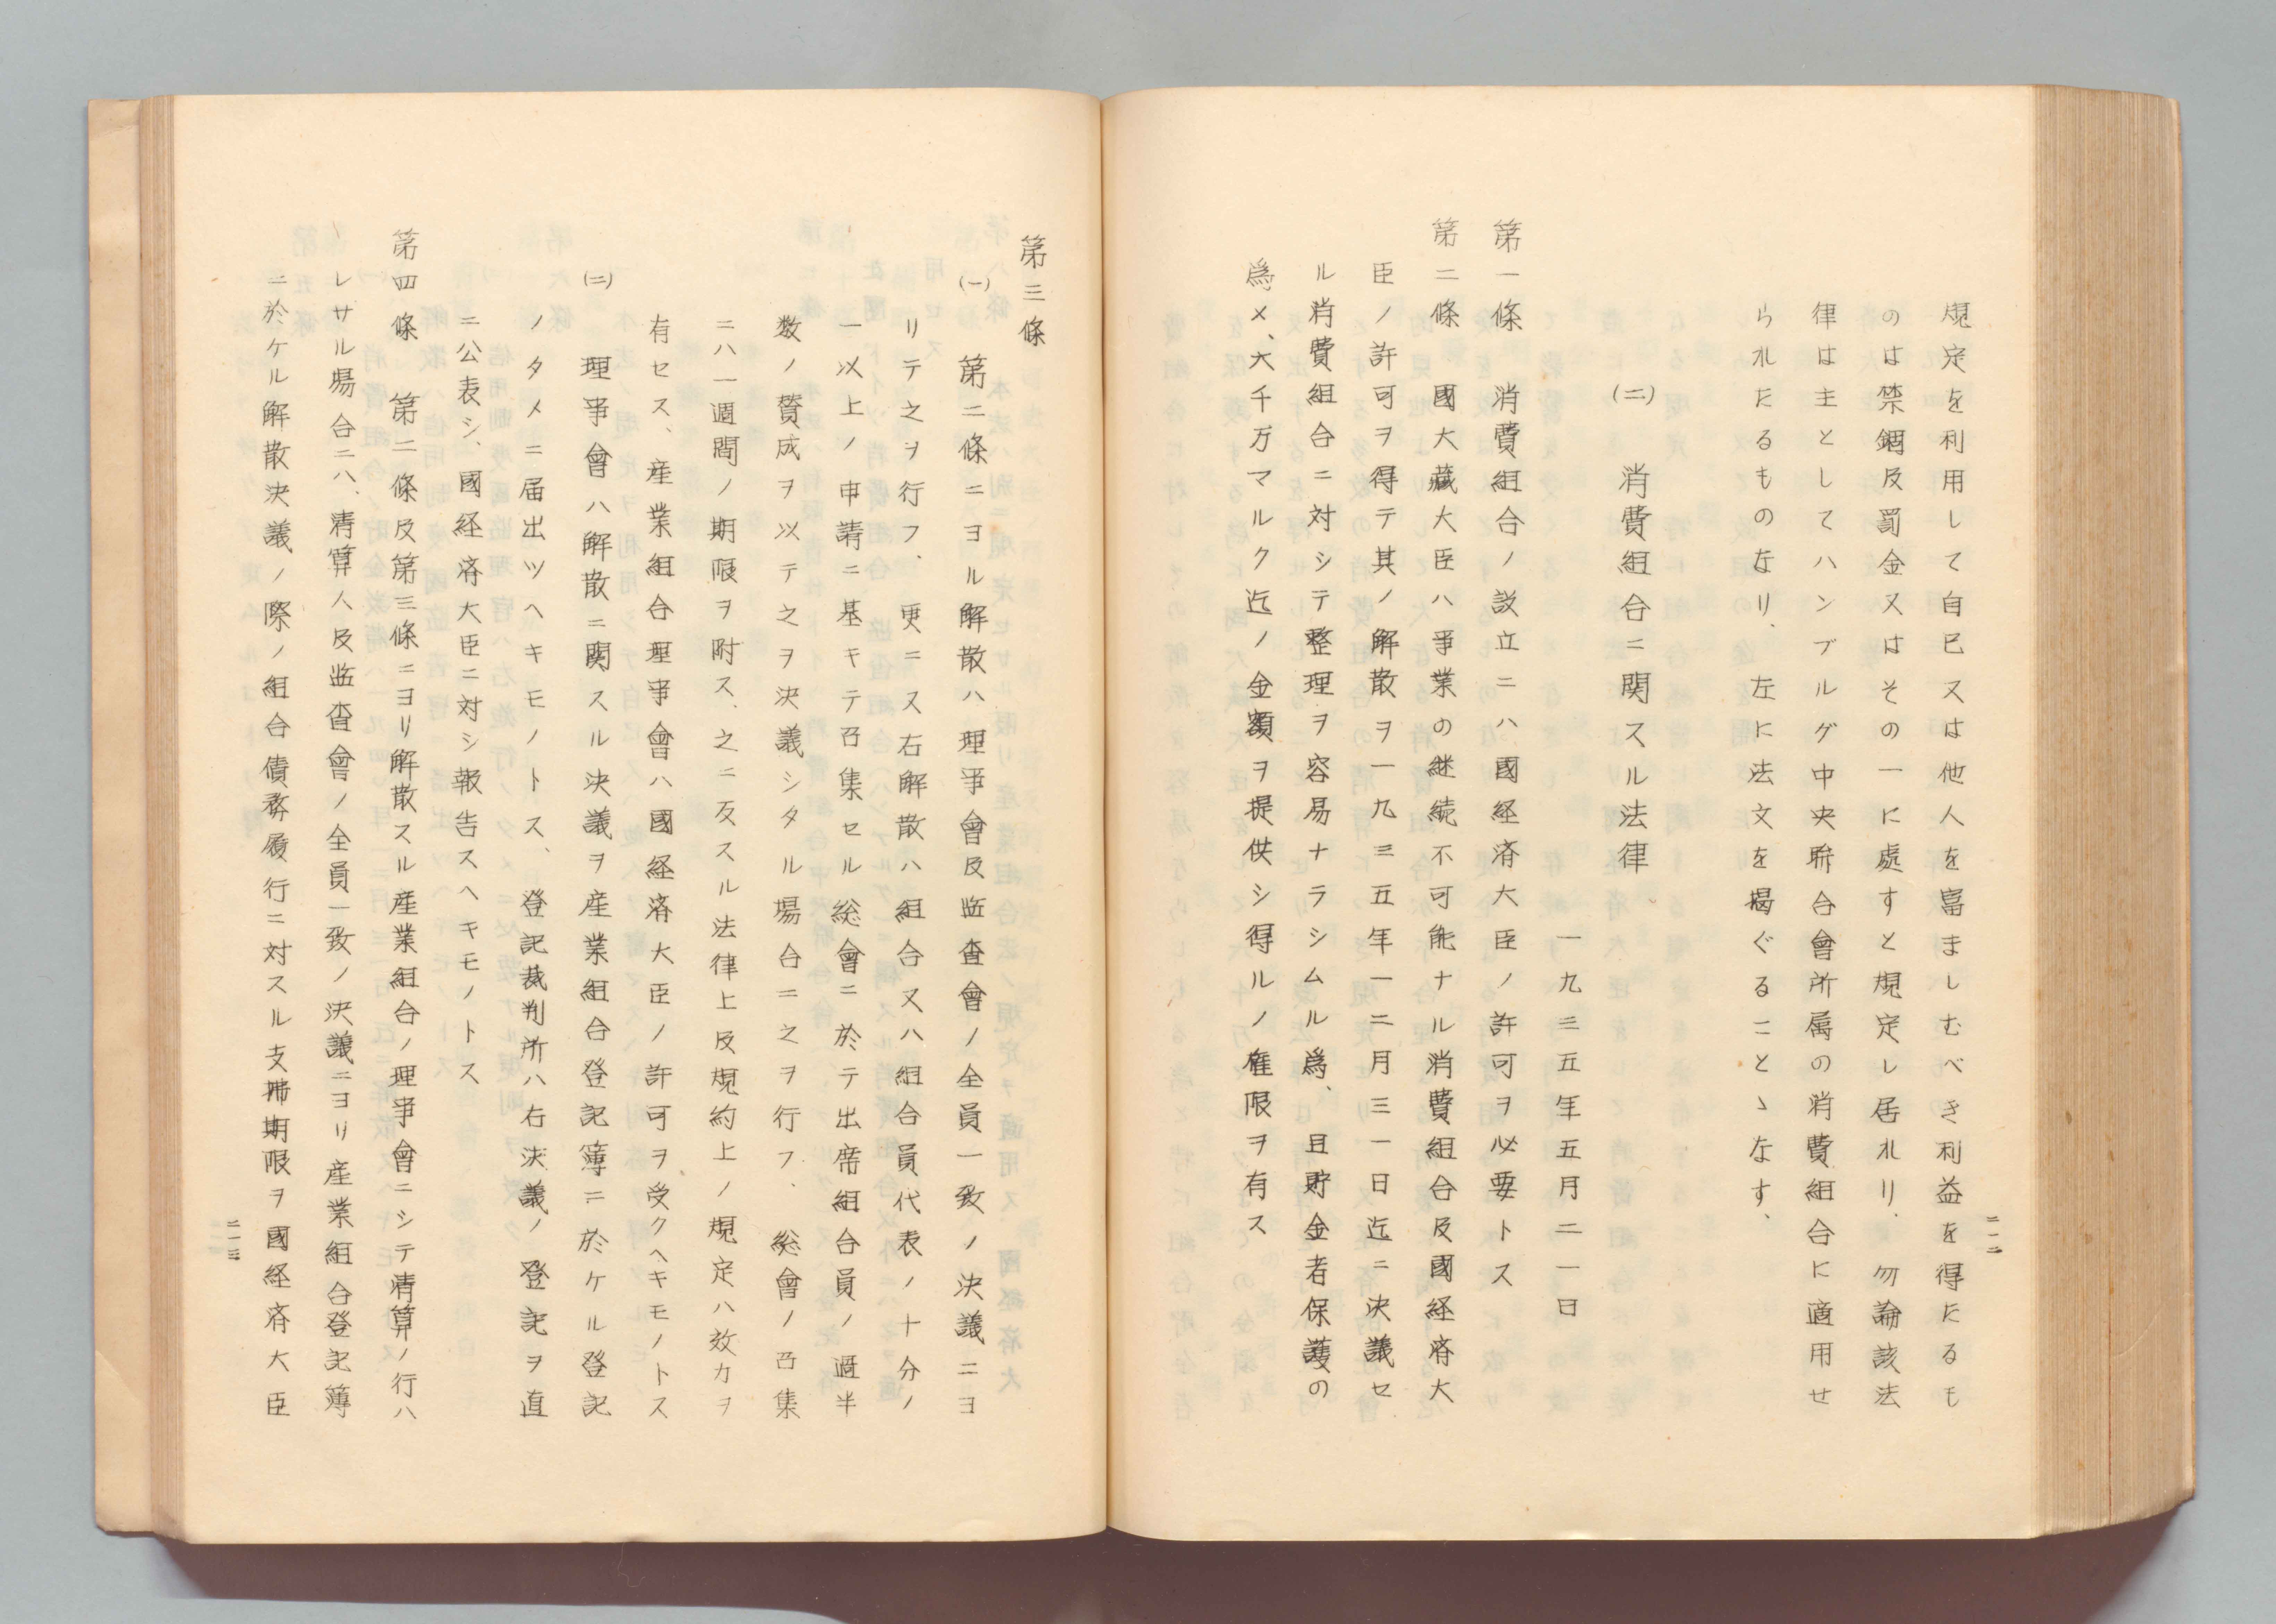 規定を利用して自已又は他人を富ましむべき利益を得たるも
のは禁錮反罰金又はその一に處すと規定し居れり、勿論該法
律は主としてハンブルグ中央聨合會所属の消費組合に適用せ
られたるものなり、左に法文を揭ぐることゝなす、
(二) 消費組合ニ関スル法律
一九三五年五月二一日
第一條 消費組合ノ設立ニハ國経済大臣ノ許可ヲ必要トス
第二條 國大藏大臣ハ事業の継続不可能ナル消費組合及國経済大
臣ノ許可ヲ得テ其ノ解散ヲ一九三五年一二月三一日迄ニ決議セ
ル消費組合ニ対シテ整理ヲ容易ナラシムル爲、且貯金者保護の
爲メ、六千万マルク迄ノ金額ヲ提供シ得ルノ権限ヲ有ス
二一二
第三條
(一) 第二條ニヨル解散ハ理事會及監査會ノ全員一致ノ決議ニヨ
リテ之ヲ行フ、更ニス右解散ハ組合又ハ組合員代表ノ十分ノ
一以上ノ申請ニ基キテ召集セル総會ニ於テ出席組合員ノ過半
数ノ賛成ヲ以テ之ヲ決議シタル場合ニ之ヲ行フ、総會ノ召集
ニハ一週間ノ期限ヲ附ス、之ニ反スル法律上及規約上ノ規定ハ效力ヲ
有セス、産業組合理事會ハ國経済大臣ノ許可ヲ受クヘキモノトス
(二) 理事會ハ解散ニ関スル決議ヲ産業組合登記簿ニ於ケル登記
ノタメニ届出ツヘキモノトス、登記裁判所ハ右決議ノ登記ヲ直
ニ公表シ、國経済大臣ニ対シ報告スヘキモノトス
第四條 第二條及第三條ニヨリ解散スル産業組合ノ理事會ニシテ清算ノ行ハ
レサル場合ニハ、清算人及監査會ノ全員一致ノ決議ニヨリ産業組合登記簿
ニ於ケル解散決議ノ際ノ組合債務履行ニ対スル支拂期限ヲ國経済大臣
二一三